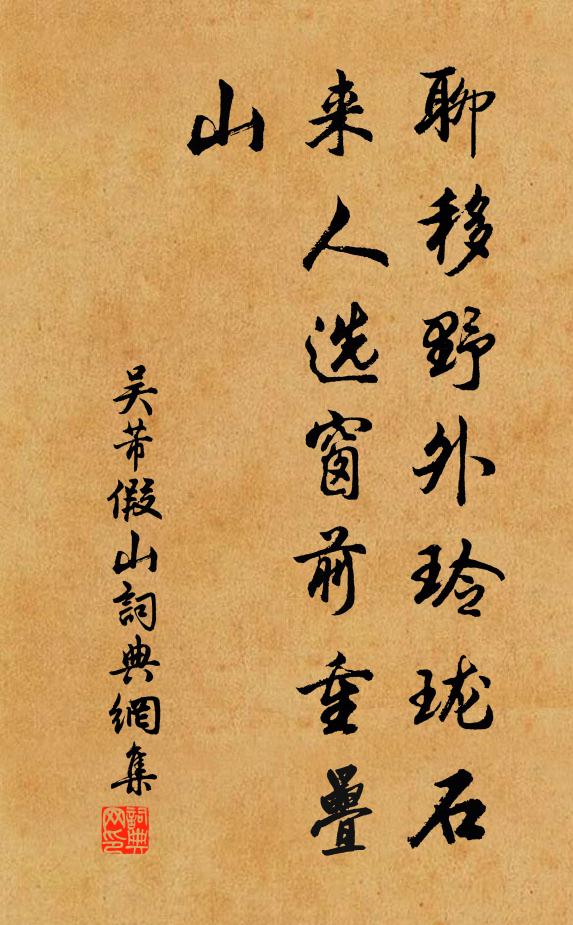 聊移野外玲珑石
来人选窗前重叠
山
吴芾假山詞典網集
詞典网印